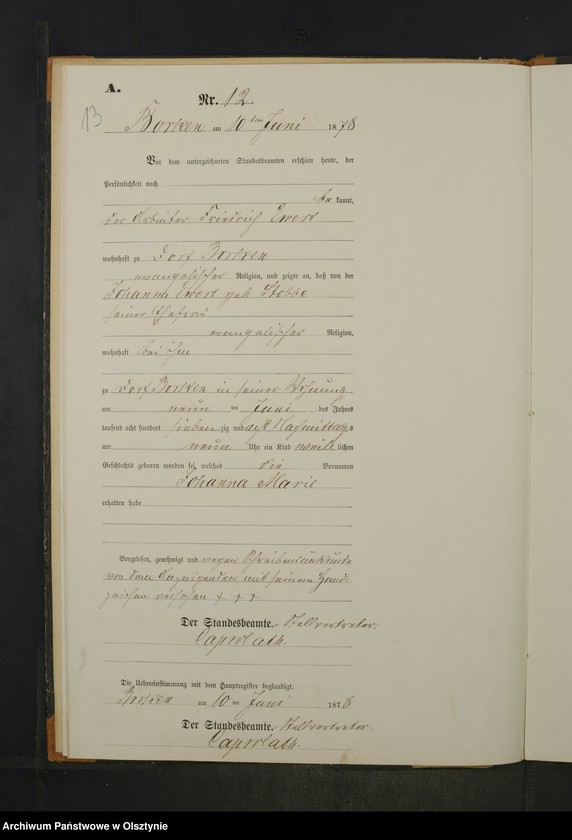 A.
13
Nr. 12.
Borken am 10ten Juni 1878
Vor dem unterzeichneten Standesbeamten erschien heute, der
Persönlichkeit nach
be kannt,
der Arbeiter Friedrich Ewert
wohnhaft zu Dorf Borken
evangelischer Religion, und zeigte an, daß von der
Johanna Ewert geb Stobbe
seiner Ehefrau
evangelischer Religion,
wohnhaft bei ihm
zu Dorf Borken in seiner Wohnung
am neun ten Juni des Jahres
tausend acht hundert sieben zig und acht Nachmittags
um neun Uhr ein Kind weib lichen
Geschlechts geboren worden sei, welches die Vornamen
Johanna Marie
erhalten habe
Vorgelesen, genehmigt und wegen Schreibensunkunde
von dem Anzeigenden mit seinem Hand-
zeichen versehen + + +
Der Standesbeamte. Stellvertreter.
Caprolath.
Die Uebereinstimmung mit dem Hauptregister beglaubigt.
Borken am 10 ten Juni 1878
Der Standesbeamte. Stellvertreter.
Caprolath.
Archiwum Państwowe w Olsztynie